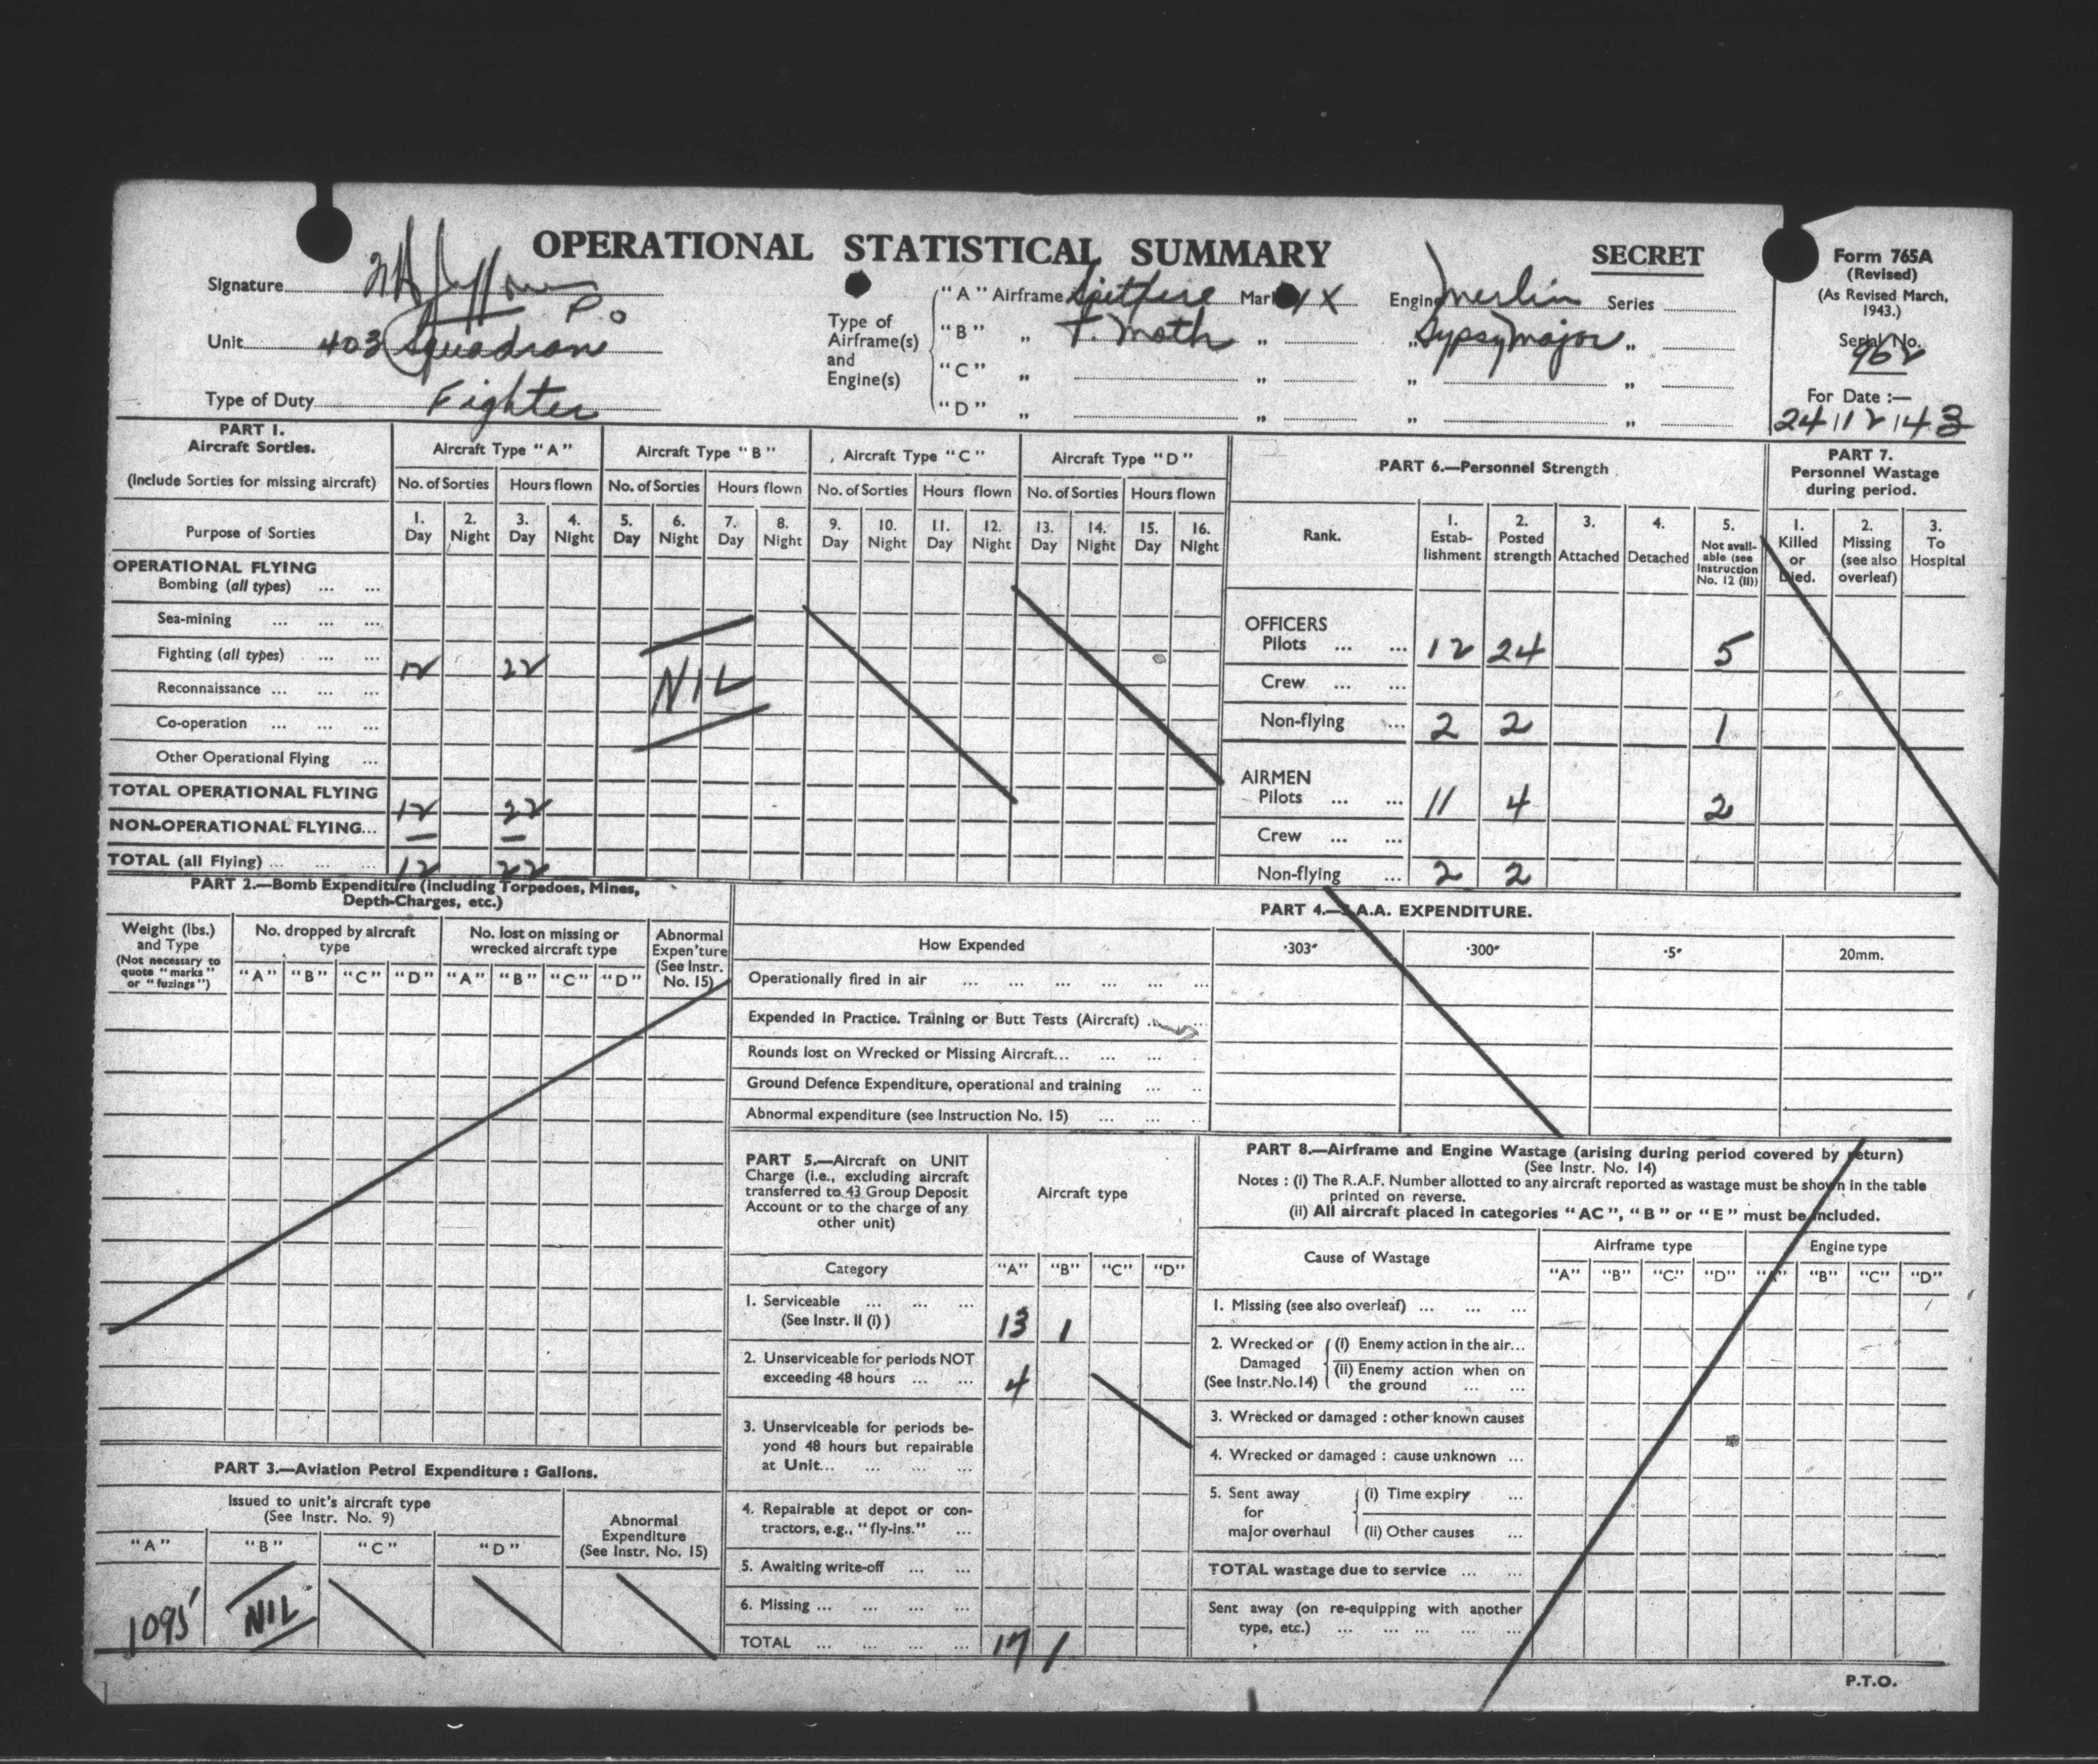 OPERATIONAL STATISTICAL SUMMARY
SECRET
Form 765A
(Revised)
(As Revised March,
1943.)
Serial No.
962
For Date :—
24/12/43
Signature
P.O
Unit 403 Squadron
Type of Duty Fighter
Type of
Airframe(s)
and
Engine(s)
"A" Airframe Spitfire Mark IX Engine Merlin Series
"B" „ T. Moth „ „ Gypsy Major „
"C" „ „ „ „
"D" „ „ „ „
PART 1.
Aircraft Sorties.
(Include Sorties for missing aircraft)
Purpose of Sorties
Aircraft Type "A" Aircraft Type "B" Aircraft Type "C" Aircraft Type "D"
No. of Sorties Hours flown No. of Sorties Hours flown No. of Sorties Hours flown No. of Sorties Hours flown
1. 2. 3. 4. 5. 6. 7. 8. 9. 10. 11. 12. 13. 14. 15. 16.
Day Night Day Night Day Night Day Night Day Night Day Night Day Night Day Night
OPERATIONAL FLYING
Bombing (all types) ... ...
Sea-mining ... ... ...
Fighting (all types) ... ... 12 22
NIL
Reconnaissance ... ... ...
Co-operation ... ... ...
Other Operational Flying ...
TOTAL OPERATIONAL FLYING 12 22
NON-OPERATIONAL FLYING... — —
TOTAL (all Flying) ... ... ... 12 22
PART 6.—Personnel Strength
Rank.
1. Estab-lishment
2. Posted strength
3. Attached
4. Detached
5. Not avail-able (see Instruction No. 12 (II))
OFFICERS
Pilots ... ... 12 24 5
Crew ... ...
Non-flying ... 2 2 1
AIRMEN
Pilots ... ... 11 4 2
Crew ... ...
Non-flying ... 2 2
PART 7.
Personnel Wastage
during period.
1. Killed or Died.
2. Missing (see also overleaf)
3. To Hospital
PART 2.—Bomb Expenditure (including Torpedoes, Mines,
Depth-Charges, etc.)
Weight (lbs.)
and Type
(Not necessary to
quote "marks"
or "fuzings")
No. dropped by aircraft
type
No. lost on missing or
wrecked aircraft type
Abnormal
Expen'ture
(See Instr.
No. 15)
"A" "B" "C" "D" "A" "B" "C" "D"
PART 4.—S.A.A. EXPENDITURE.
How Expended ·303" ·300" ·5" 20mm.
Operationally fired in air ... ... ... ... ... ...
Expended in Practice. Training or Butt Tests (Aircraft) ... ...
Rounds lost on Wrecked or Missing Aircraft... ... ... .
Ground Defence Expenditure, operational and training ... ..
Abnormal expenditure (see Instruction No. 15) ... ... ..
PART 5.—Aircraft on UNIT
Charge (i.e., excluding aircraft
transferred to 43 Group Deposit
Account or to the charge of any
other unit)
Aircraft type
Category "A" "B" "C" "D"
1. Serviceable ... ... ...
(See Instr. II (i)) 13 1
2. Unserviceable for periods NOT
exceeding 48 hours ... ... 4
3. Unserviceable for periods be-
yond 48 hours but repairable
at Unit... ... ... ...
4. Repairable at depot or con-
tractors, e.g., "fly-ins." ...
5. Awaiting write-off ... ...
6. Missing ... ... ... ...
TOTAL ... ... ... ... 17 1
PART 8.—Airframe and Engine Wastage (arising during period covered by return)
(See Instr. No. 14)
Notes : (i) The R.A.F. Number allotted to any aircraft reported as wastage must be shown in the table
printed on reverse.
(ii) All aircraft placed in categories "AC", "B" or "E" must be included.
Cause of Wastage Airframe type Engine type
"A" "B" "C" "D" "A" "B" "C" "D"
1. Missing (see also overleaf) ... ... ...
2. Wrecked or Damaged (See Instr.No.14)
(i) Enemy action in the air...
(ii) Enemy action when on
the ground ... ...
3. Wrecked or damaged : other known causes
4. Wrecked or damaged : cause unknown ...
5. Sent away for major overhaul
(i) Time expiry ...
(ii) Other causes ...
TOTAL wastage due to service ... ...
Sent away (on re-equipping with another
type, etc.) ... ... ... ... ...
PART 3.—Aviation Petrol Expenditure : Gallons.
Issued to unit's aircraft type
(See Instr. No. 9)
Abnormal
Expenditure
(See Instr. No. 15)
"A" "B" "C" "D"
1095 NIL
P.T.O.